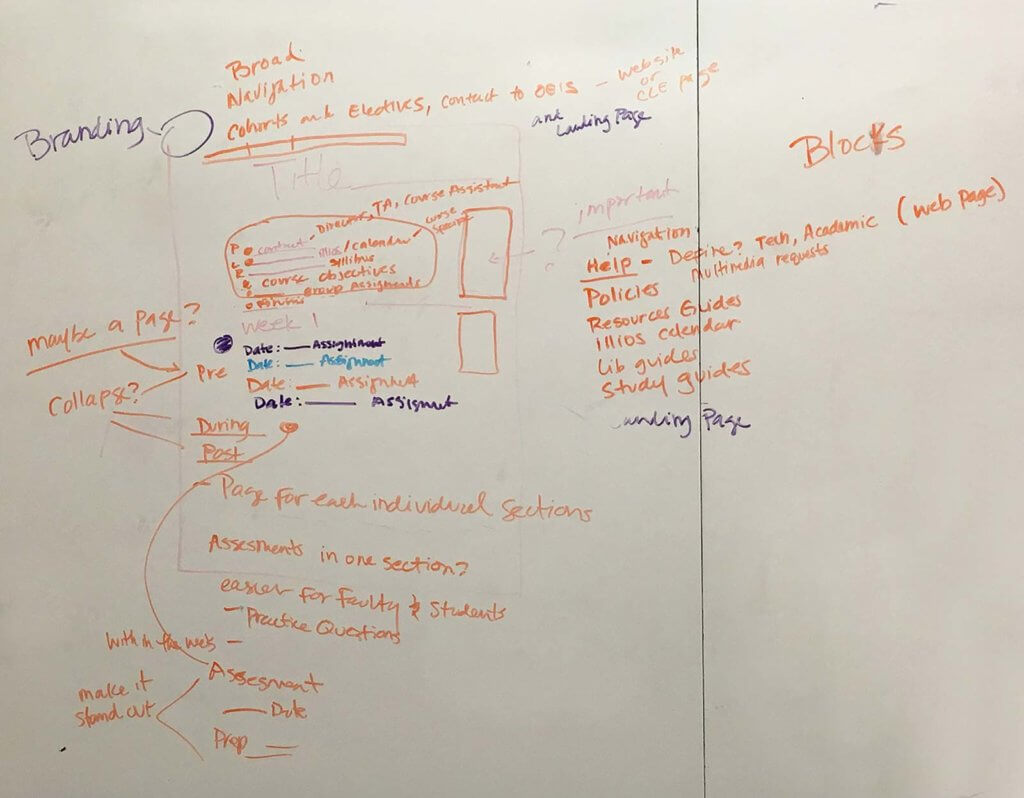 Broad
Navigation
Cohorts and Electives, contact to OEIS - website
or
CLE page
and
Landing Page
Branding
Blocks
Title
Director, TA, Course Assistant
contract
illios/calendar
course
syllibus
course objectives
group assignments
Forums
important
?
Navigation
Help - Define? Tech, Academic (web page)
multimedia requests
Policies
Resources Guides
illios calendar
Lib guides
Study guides
Landing Page
week 1
maybe a page?
Collapse?
Pre
Date: — Assignment
Date: — Assignment
Date: — Assignment
Date: — Assigment
During
Post
- Page for each individual sections
Assesments in one section?
easier for faculty & Students
- Practice Questions
with in the web -
Assesment
— Date
Prep
make it
stand out